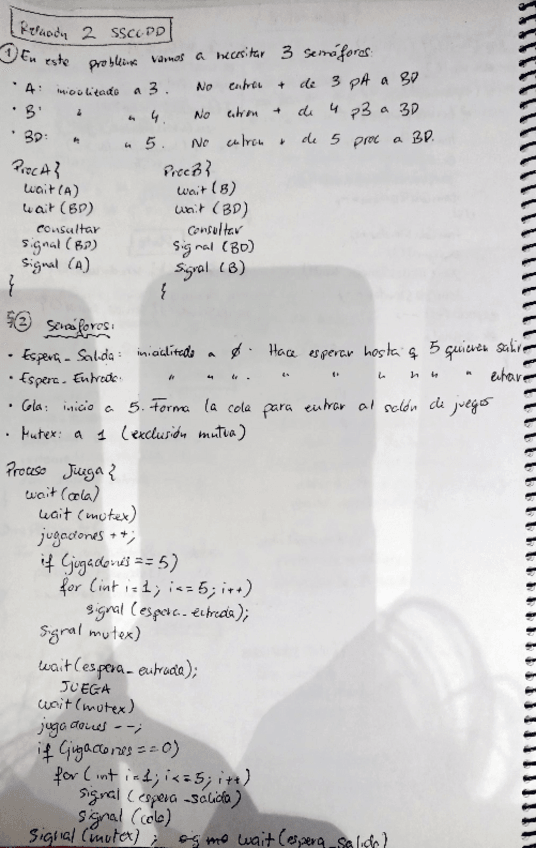 Relación 2 SSCCDD
① En este problema vamos a necesitar 3 semáforos:
· A: inicializado a 3. No entran + de 3 pA a BD
· B: " a 4. No entran + de 4 pB a BD
· BD: " a 5. No entran + de 5 proc a BD.
ProcA{ ProcB{
wait(A) wait(B)
wait(BD) wait(BD)
consultar consultar
signal(BD) signal(BD)
signal(A) signal(B)
{ {
② Semáforos:
· Espera_Salida: inicializado a 0. Hace esperar hasta q 5 quieran salir
· Espera_Entrada: " " ". " " " " " " entrar
· Cola: inicio a 5. Forma la cola para entrar al salón de juegos
· Mutex: a 1 (exclusión mutua)
Proceso Juega{
wait(cola)
wait(mutex)
jugadores ++;
if (jugadores==5)
for (int i=1; i<=5; i++)
signal(espera_entrada);
signal mutex)
wait(espera_entrada);
JUEGA
wait(mutex)
jugadores --;
if (jugadores==0)
for (int i=1; i<=5; i++)
signal(espera_salida)
signal(cola)
signal(mutex); wait(espera_salida)